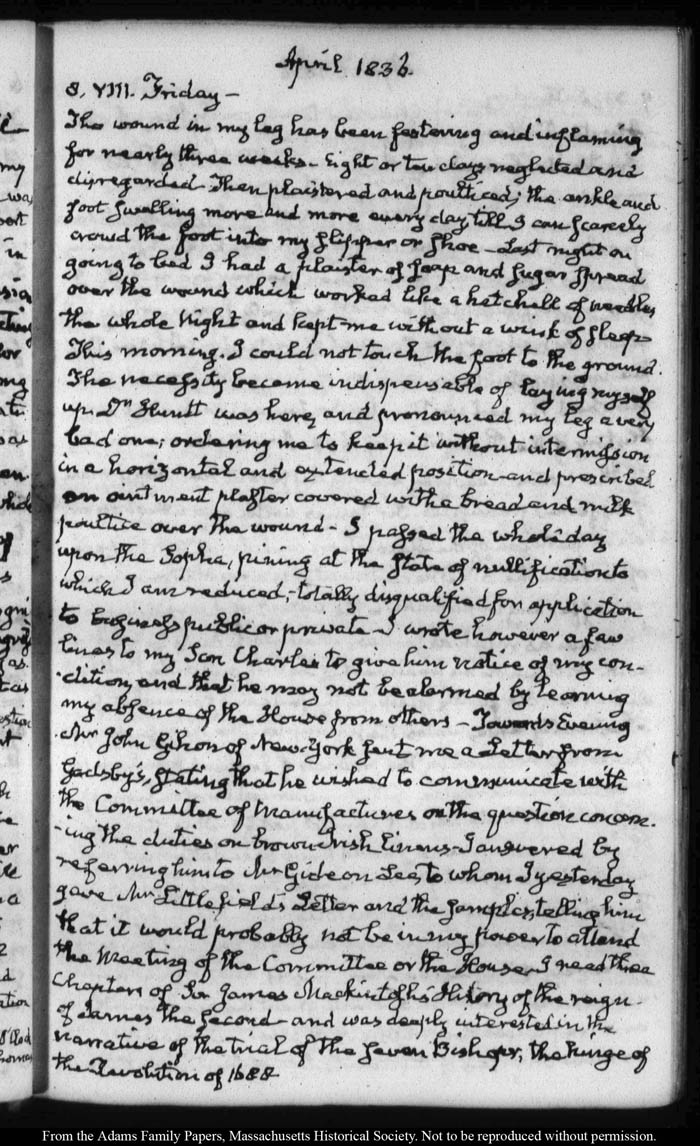 April 1836.
8. VIII. Friday —
The wound in my leg has been festering and inflaming
for nearly three weeks – Eight or ten days neglected and
disregarded – Then plaistered and poulticed; the ankle and
foot swelling more and more every day till I can scarcely
crowd the foot into my slipper or shoe – Last night on
going to bed I had a plaister of soap and sugar spread
over the wound which worked like a hatchell of needles
the whole Night and kept me without a wink of sleep
This morning I could not touch the foot to the ground.
The necessity became indispensable of laying myself
up. Dr. Huntt was here, and pronounced my leg a very
bad one; ordering me to keep it without intermission
in a horizontal and extended position – and prescribed
an ointment plaster covered with a bread and milk
poultice over the wound – I passed the whole day
upon the Sopha, pining at the state of nullification to
which I am reduced; – totally disqualified for application
to business public or private – I wrote however a few
lines to my Son Charles to give him notice of my con-
-dition, and that he may not be alarmed by learning
my absence of the House from others – Towards Evening
Mr John Gihon of New-York sent me a Letter from
Gadsby's, stating that he wished to communicate with
the Committee of Manufactures on the question concern-
-ing the duties on brown Irish linens – I answered by
referring him to Mr Gideon Lee, to whom I yesterday
gave Mr Littlefield's Letter and the samples, telling him
that it would probably not be in my power to attend
the Meeting of the Committee or the House. I read three
Chapters of Sir James Mackintosh's History of the reign
of James the Second – and was deeply interested in the
narrative of the trial of the seven Bishops, the hinge of
the Revolution of 1688
From the Adams Family Papers, Massachusetts Historical Society. Not to be reproduced without permission.